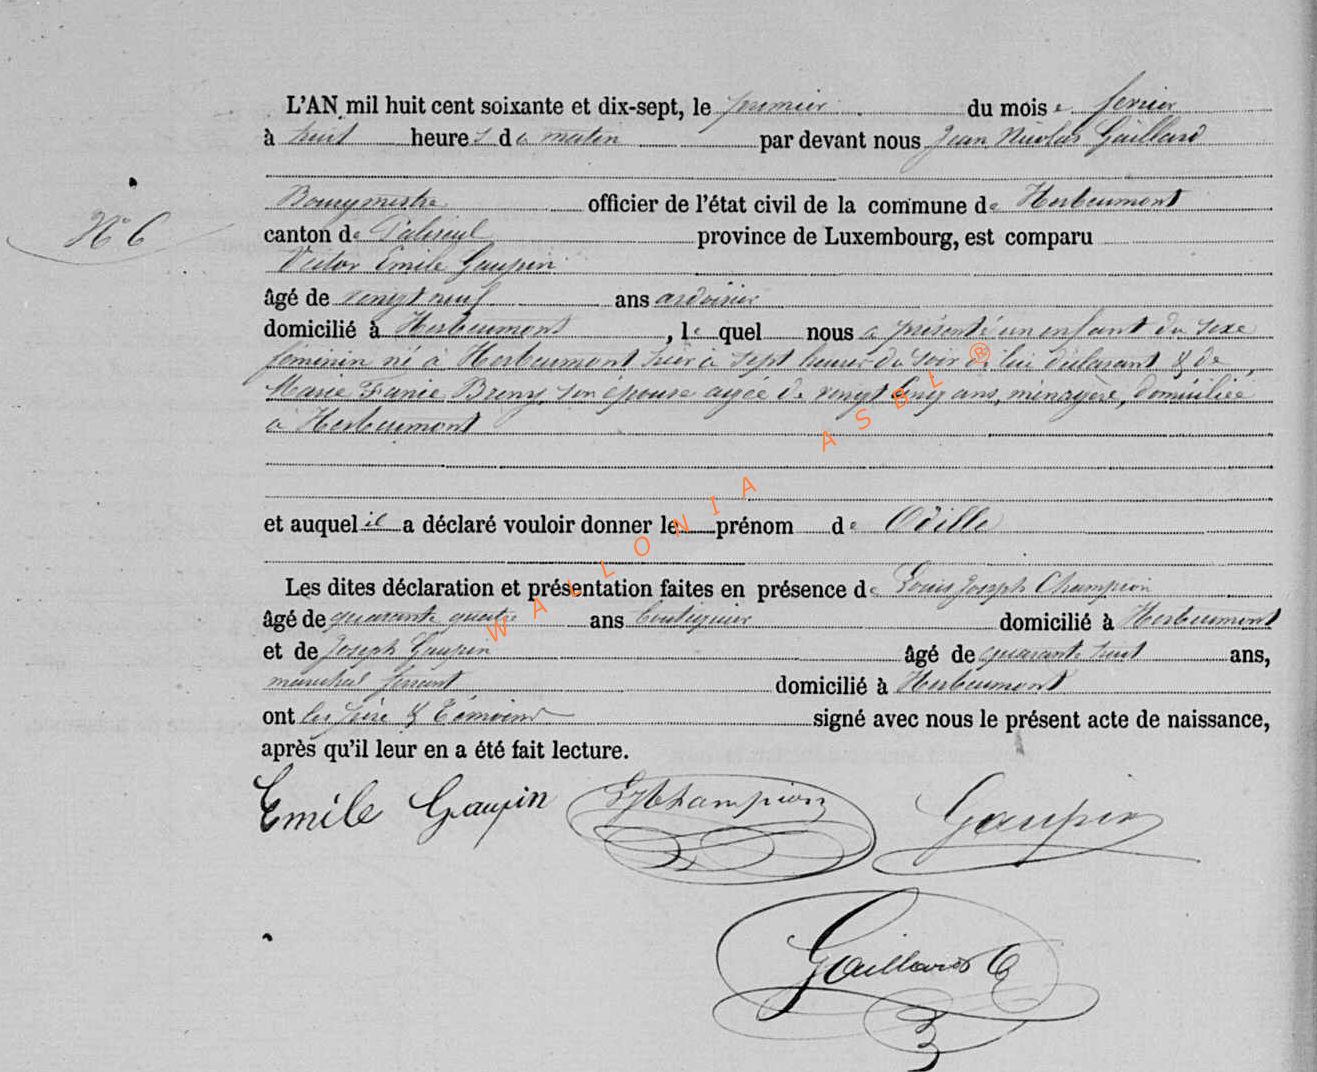 L'AN mil huit cent soixante et dix-sept, le premier du mois de fevrier
à huit heures du matin par devant nous Jean Nicolas Gaillard
Bourgmestre officier de l'état civil de la commune de Herbeumont
N° 6
canton de Paliseul province de Luxembourg, est comparu
Victor Emile Gaupin
âgé de vingt neuf ans ardoisier
domicilié à Herbeumont, lequel nous a présenté un enfant du sexe
féminin né à Herbeumont hier à sept heures du soir de lui déclarant & de
Marie Fanie son épouse agée de vingt cinq ans, ménagère, domiciliée
à Herbeumont
et auquel il a déclaré vouloir donner le prénom de Odille
Les dites déclaration et présentation faites en présence de Louis Joseph Champion
âgé de quarante quatre ans boutiquier domicilié à Herbeumont
et de Joseph Gaupin âgé de quarante huit ans,
maréchal ferrant domicilié à Herbeumont
ont les père & témoins signé avec nous le présent acte de naissance,
après qu'il leur en a été fait lecture.
Emile Gaupin LJChampion Gaupin
Gaillard
WALLONIA ASBL ®